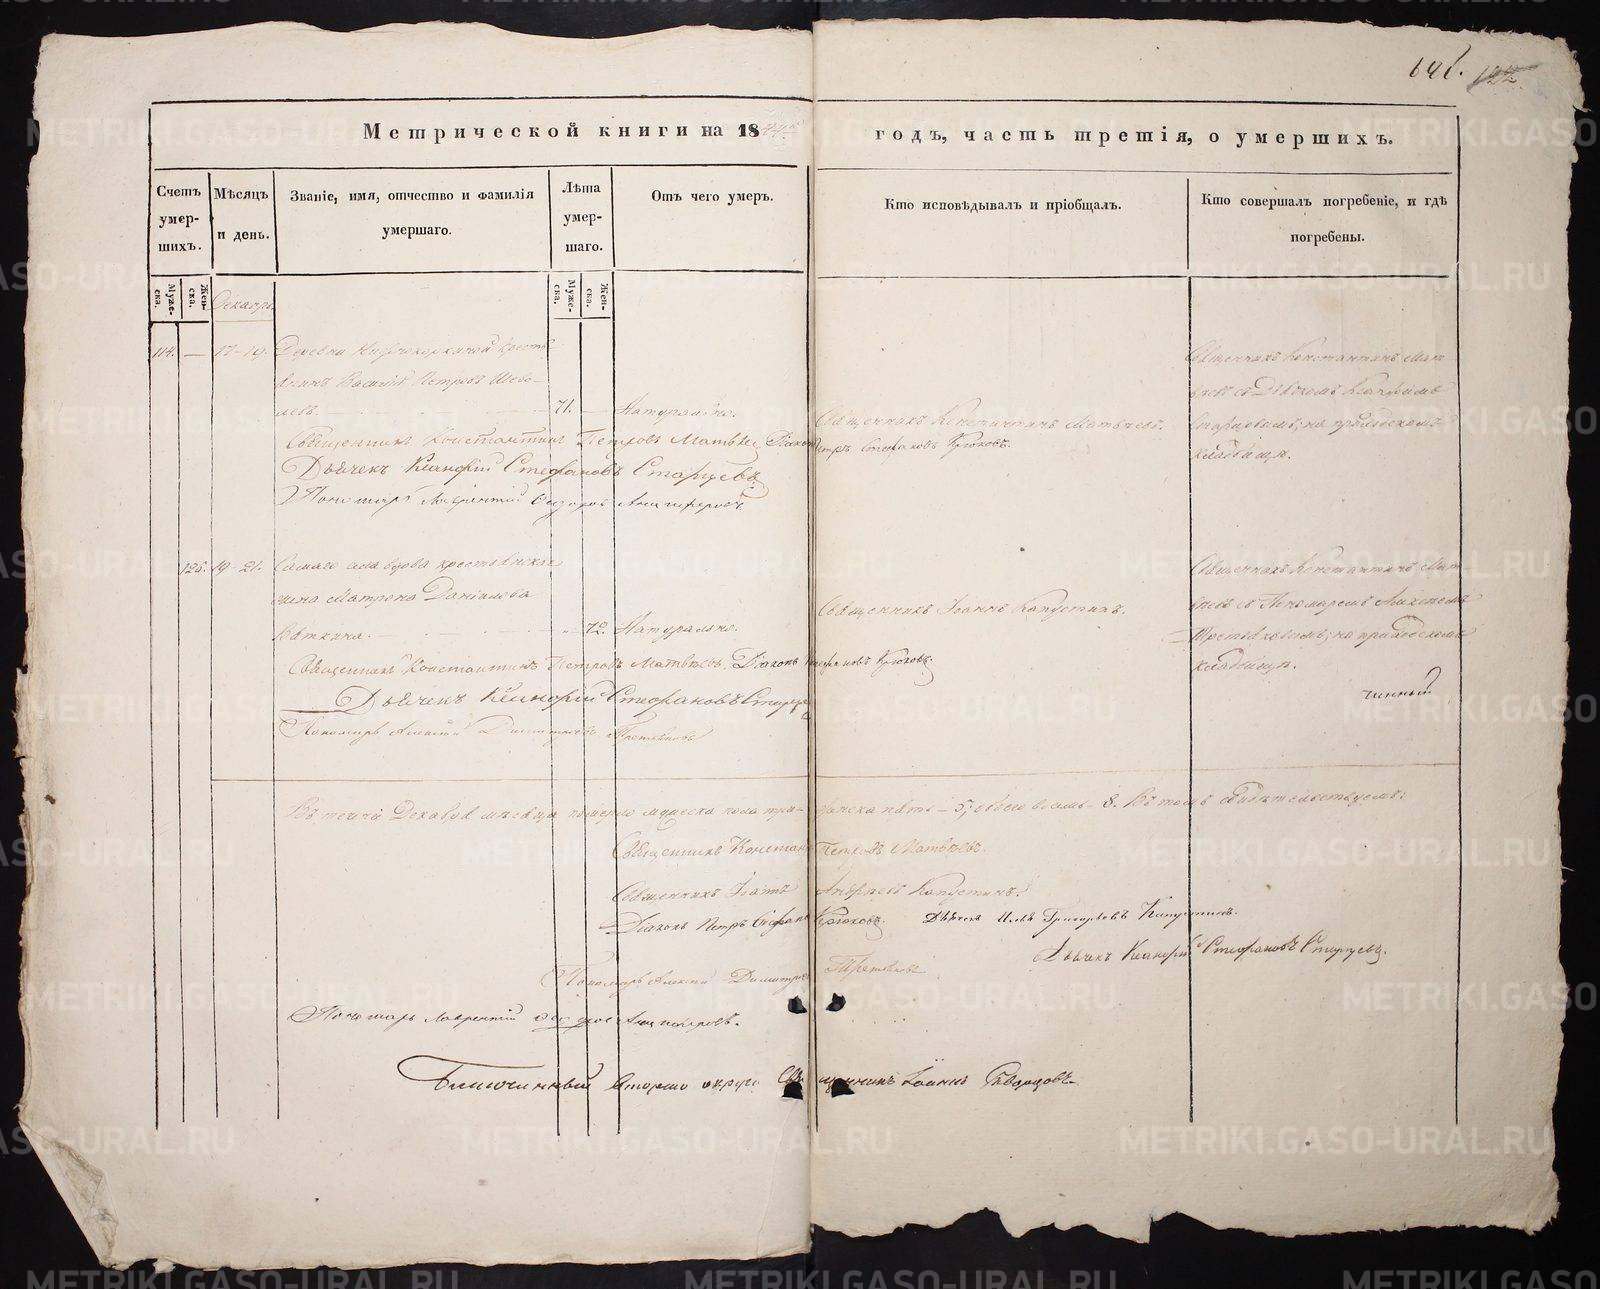 641.
122.
Метрической книги на 1844й годъ, часть третія, о умершихъ.
Счетъ умершихъ.
Мѣсяцъ и день.
Званіе, имя, отчество и фамилія умершаго.
Лѣта умершаго.
Отъ чего умеръ.
Кто исповѣдывалъ и пріобщалъ.
Кто совершалъ погребеніе, и гдѣ погребены.
Мужеска.
Женска.
Мужеска.
Женска.
Декабрь.
114. — 17-19. Деревни крестьянинъ Василій Петровъ
71. — Натурально.
Священникъ Константинъ Матвѣевъ.
Священникъ Константинъ Матвѣевъ съ Дьячкомъ Старцовымъ, на приходскомъ кладбищѣ.
Священникъ Константинъ Петровъ Матвѣевъ Діаконъ Петръ Стефановъ Крюковъ.
Дьячекъ Стефановъ Старцевъ.
Пономарь Лаврентій Анциферовъ
126. 19-21. Самаго села вдова крестьянская жена Матрена Даніилова Вяткина.
72. Натурально.
Священникъ Іоаннъ Капустинъ.
Священникъ Константинъ Матвѣевъ съ Пономаремъ Алексѣемъ Третьяковымъ, на приходскомъ кладбищѣ.
Священникъ Константинъ Петровъ Матвѣевъ. Діаконъ Стефановъ Крюковъ.
чинный
Дьячекъ Стефановъ Старцевъ
Пономарь Алексій Димитріевъ Третьяковъ
Въ Декабрѣ мѣсяцѣ померло мужеска пола три — женска пять — 5, обоего восемь — 8. Въ томъ свидѣтельствуемъ:
Священникъ Константинъ Петровъ Матвѣевъ.
Священникъ Іоаннъ Андреевъ Капустинъ.
Діаконъ Петръ Стефановъ Крюковъ. Дьячекъ Илья Григорьевъ Капустинъ.
Дьячекъ Стефановъ Старцевъ.
Пономарь Алексій Димитріевъ Третьяковъ
Пономарь Лаврентій Анциферовъ.
Благочинный втораго округа Священникъ Іоаннъ Скворцовъ.
METRIKI.GASO-URAL.RU